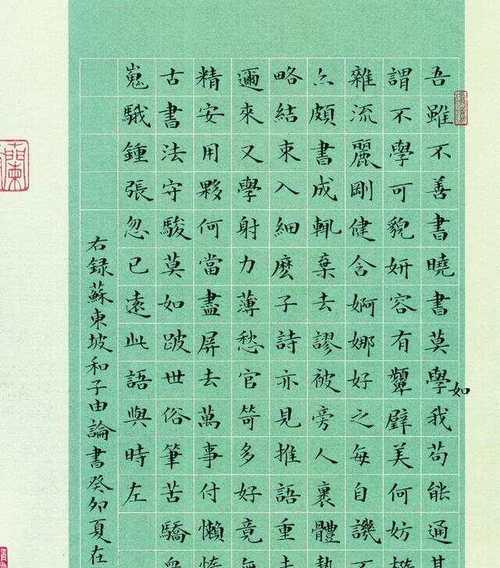 吾雖不善書曉書莫學如我苟能通其
謂不學可貌妍容有顰璧美何妨橢
雜流麗剛健含婀娜好之每自譏不
亦頗書成輒棄去謬被旁人裹體勢
略結束入細麼子詩亦見推語重未
邇來又學射力薄愁官笴多好竟無
精安用夥何當盡屏去萬事付懶惰
古書法守駿莫如跛世俗筆苦驕衆
嵬騀鍾張忽已遠此語與時左
右錄蘇東坡和子由論書癸卯夏在